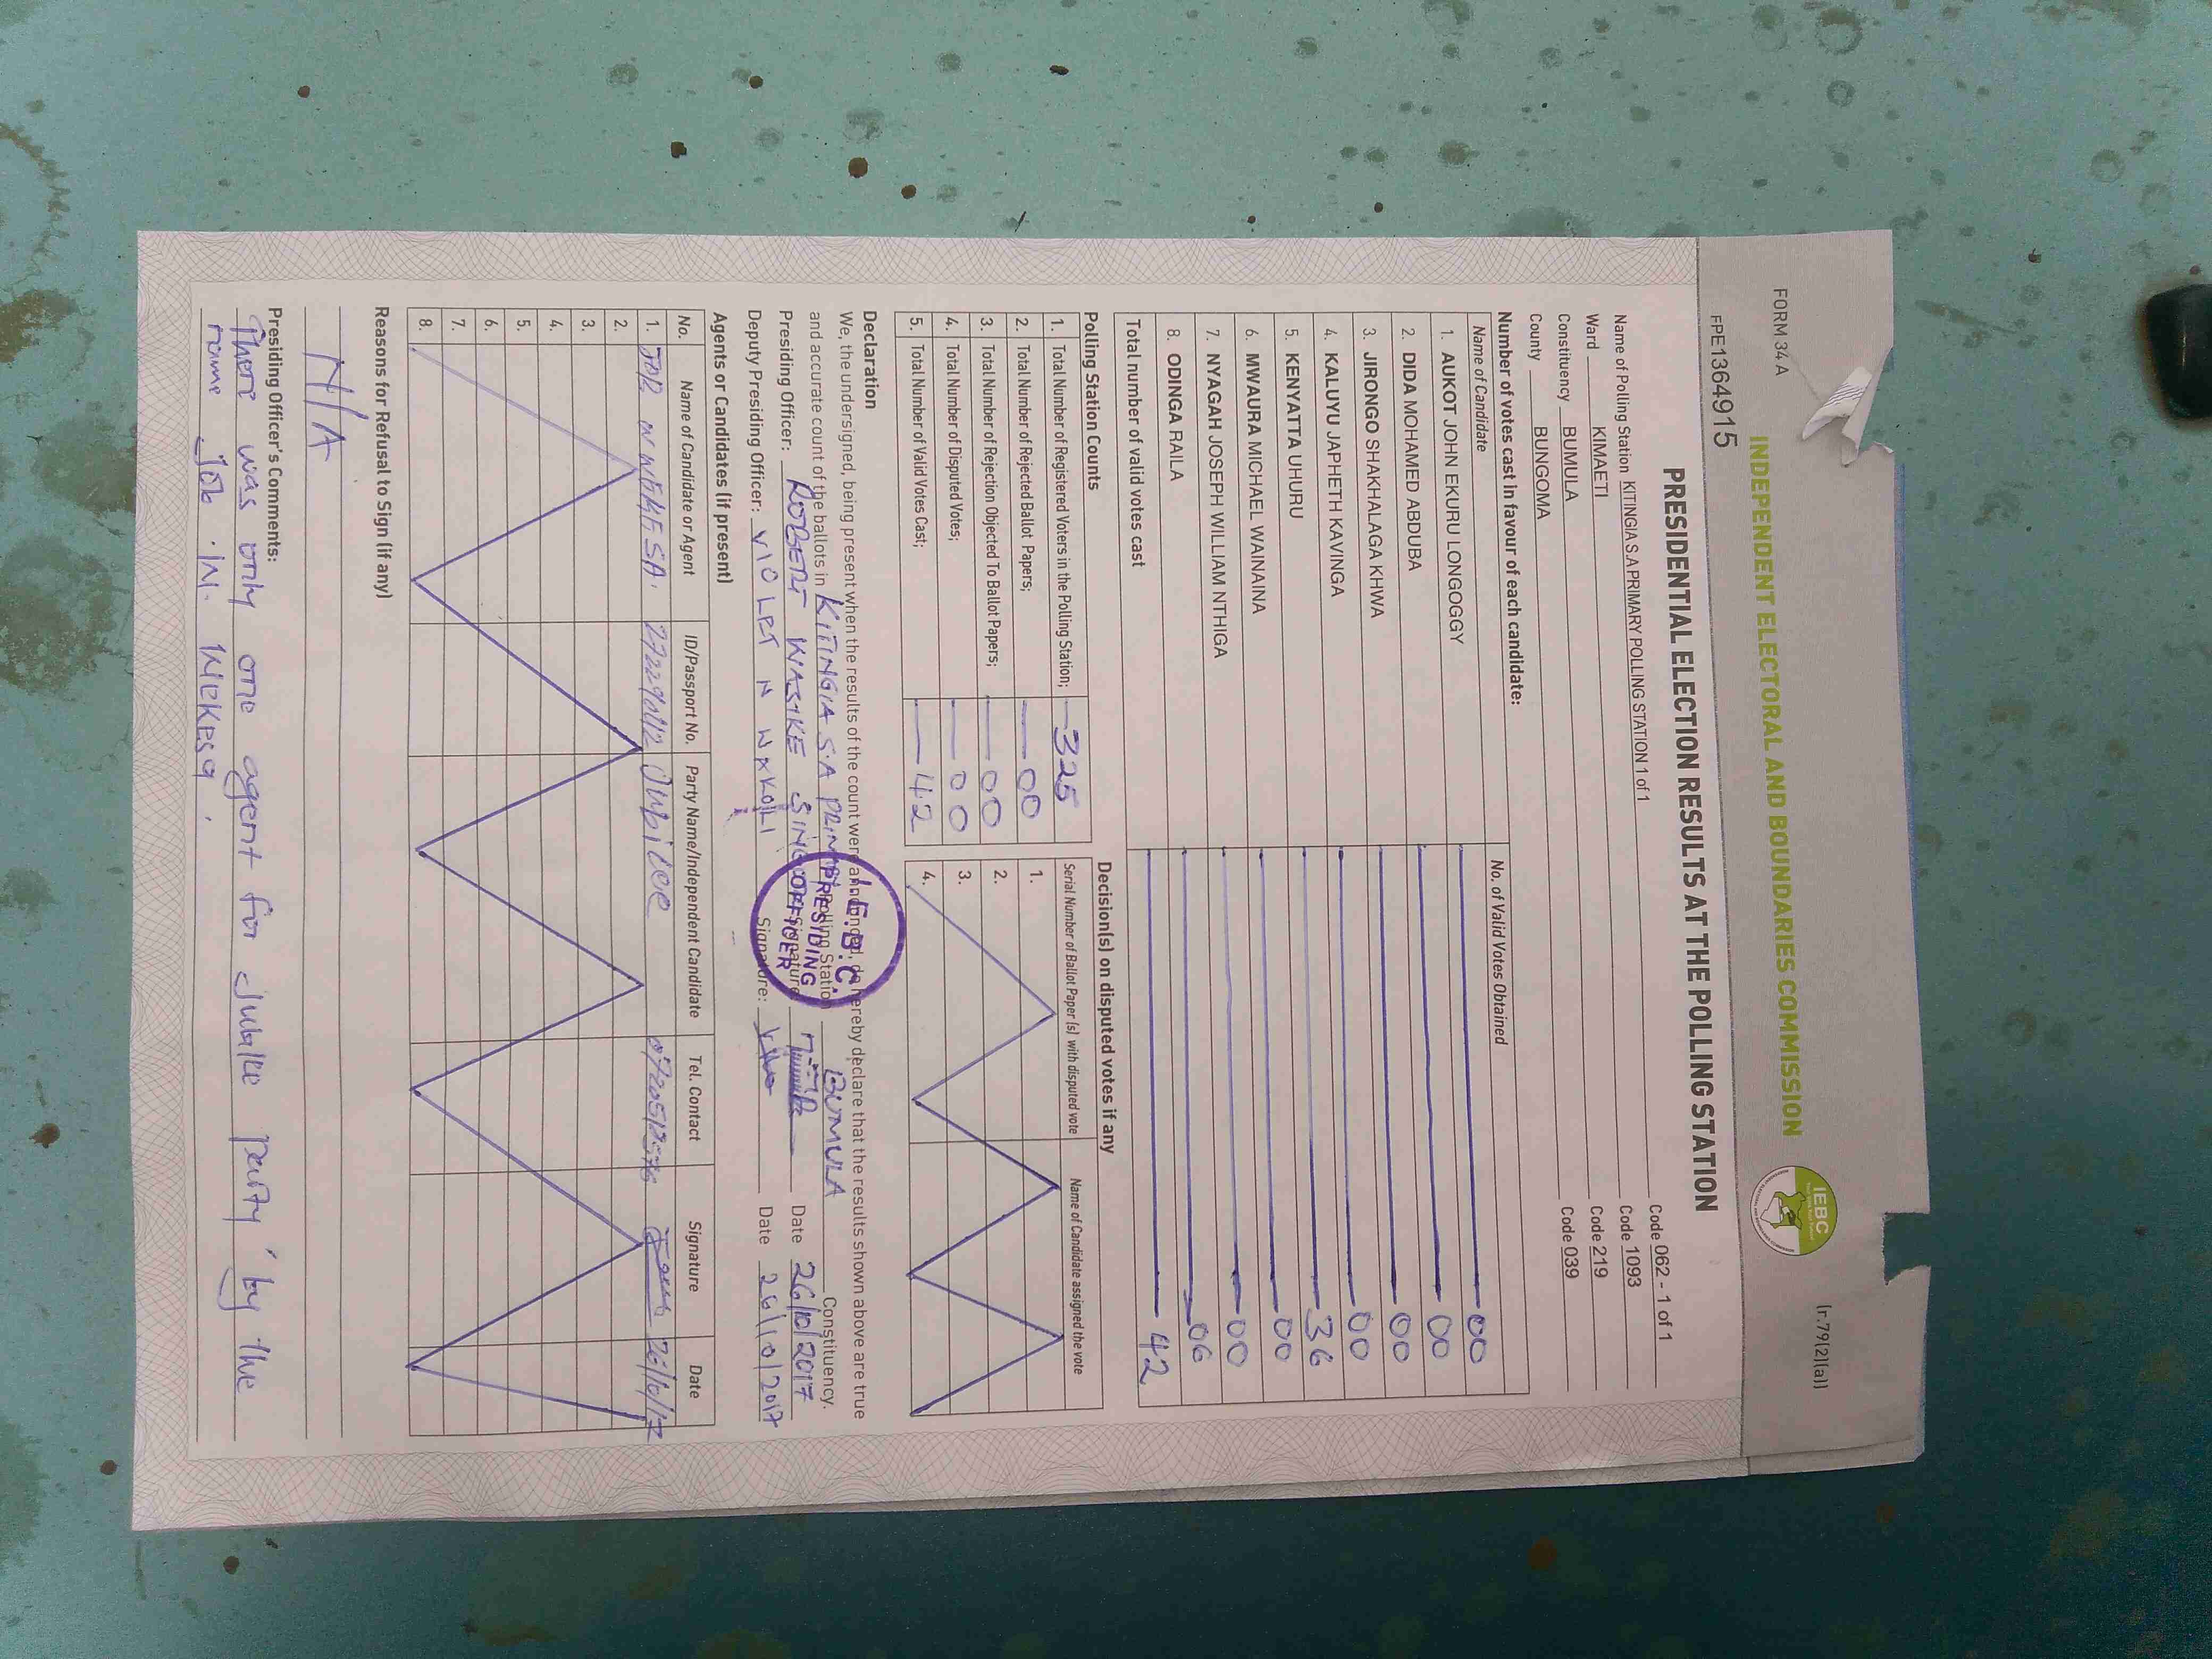 FORM 34A
(r.79(2)(a))
INDEPENDENT ELECTORAL AND BOUNDARIES COMMISSION
IEBC
FPE1364915
PRESIDENTIAL ELECTION RESULTS AT THE POLLING STATION
Name of Polling Station KITINGIA S.A PRIMARY POLLING STATION 1 of 1 Code 062 - 1 of 1
Ward KIMAETI Code 1093
Constituency BUMULA Code 219
County BUNGOMA Code 039
Number of votes cast in favour of each candidate:
Name of Candidate No. of Valid Votes Obtained
1. AUKOT JOHN EKURU LONGOGGY 00
2. DIDA MOHAMED ABDUBA 00
3. JIRONGO SHAKHALAGA KHWA 00
4. KALUYU JAPHETH KAVINGA 00
5. KENYATTA UHURU 36
6. MWAURA MICHAEL WAINAINA 00
7. NYAGAH JOSEPH WILLIAM NTHIGA 00
8. ODINGA RAILA 06
Total number of valid votes cast 42
Polling Station Counts
1. Total Number of Registered Voters in the Polling Station; 325
2. Total Number of Rejected Ballot Papers; 00
3. Total Number of Rejection Objected To Ballot Papers; 00
4. Total Number of Disputed Votes; 00
5. Total Number of Valid Votes Cast; 42
Decision(s) on disputed votes if any
Serial Number of Ballot Paper (s) with disputed vote Name of Candidate assigned the vote
1.
2.
3.
4.
Declaration
We, the undersigned, being present when the results of the count were announced, do hereby declare that the results shown above are true
and accurate count of the ballots in KITINGIA S.A PRIM Polling Station BUMULA Constituency.
Presiding Officer: ROBERT WASIKE Signature Date 26/10/2017
Deputy Presiding Officer: VIOLET N Signature: Date 26/10/2017
I.E.B.C.
PRESIDING
OFFICER
Agents or Candidates (if present)
No. Name of Candidate or Agent ID/Passport No. Party Name/Independent Candidate Tel. Contact Signature Date
1. JOB W WEKESA. Jubilee 26/10/17
2.
3.
4.
5.
6.
7.
8.
Reasons for Refusal to Sign (if any)
N/A
Presiding Officer's Comments:
There was only one agent for Jubilee party by the
name Job . IN. Wekesa.